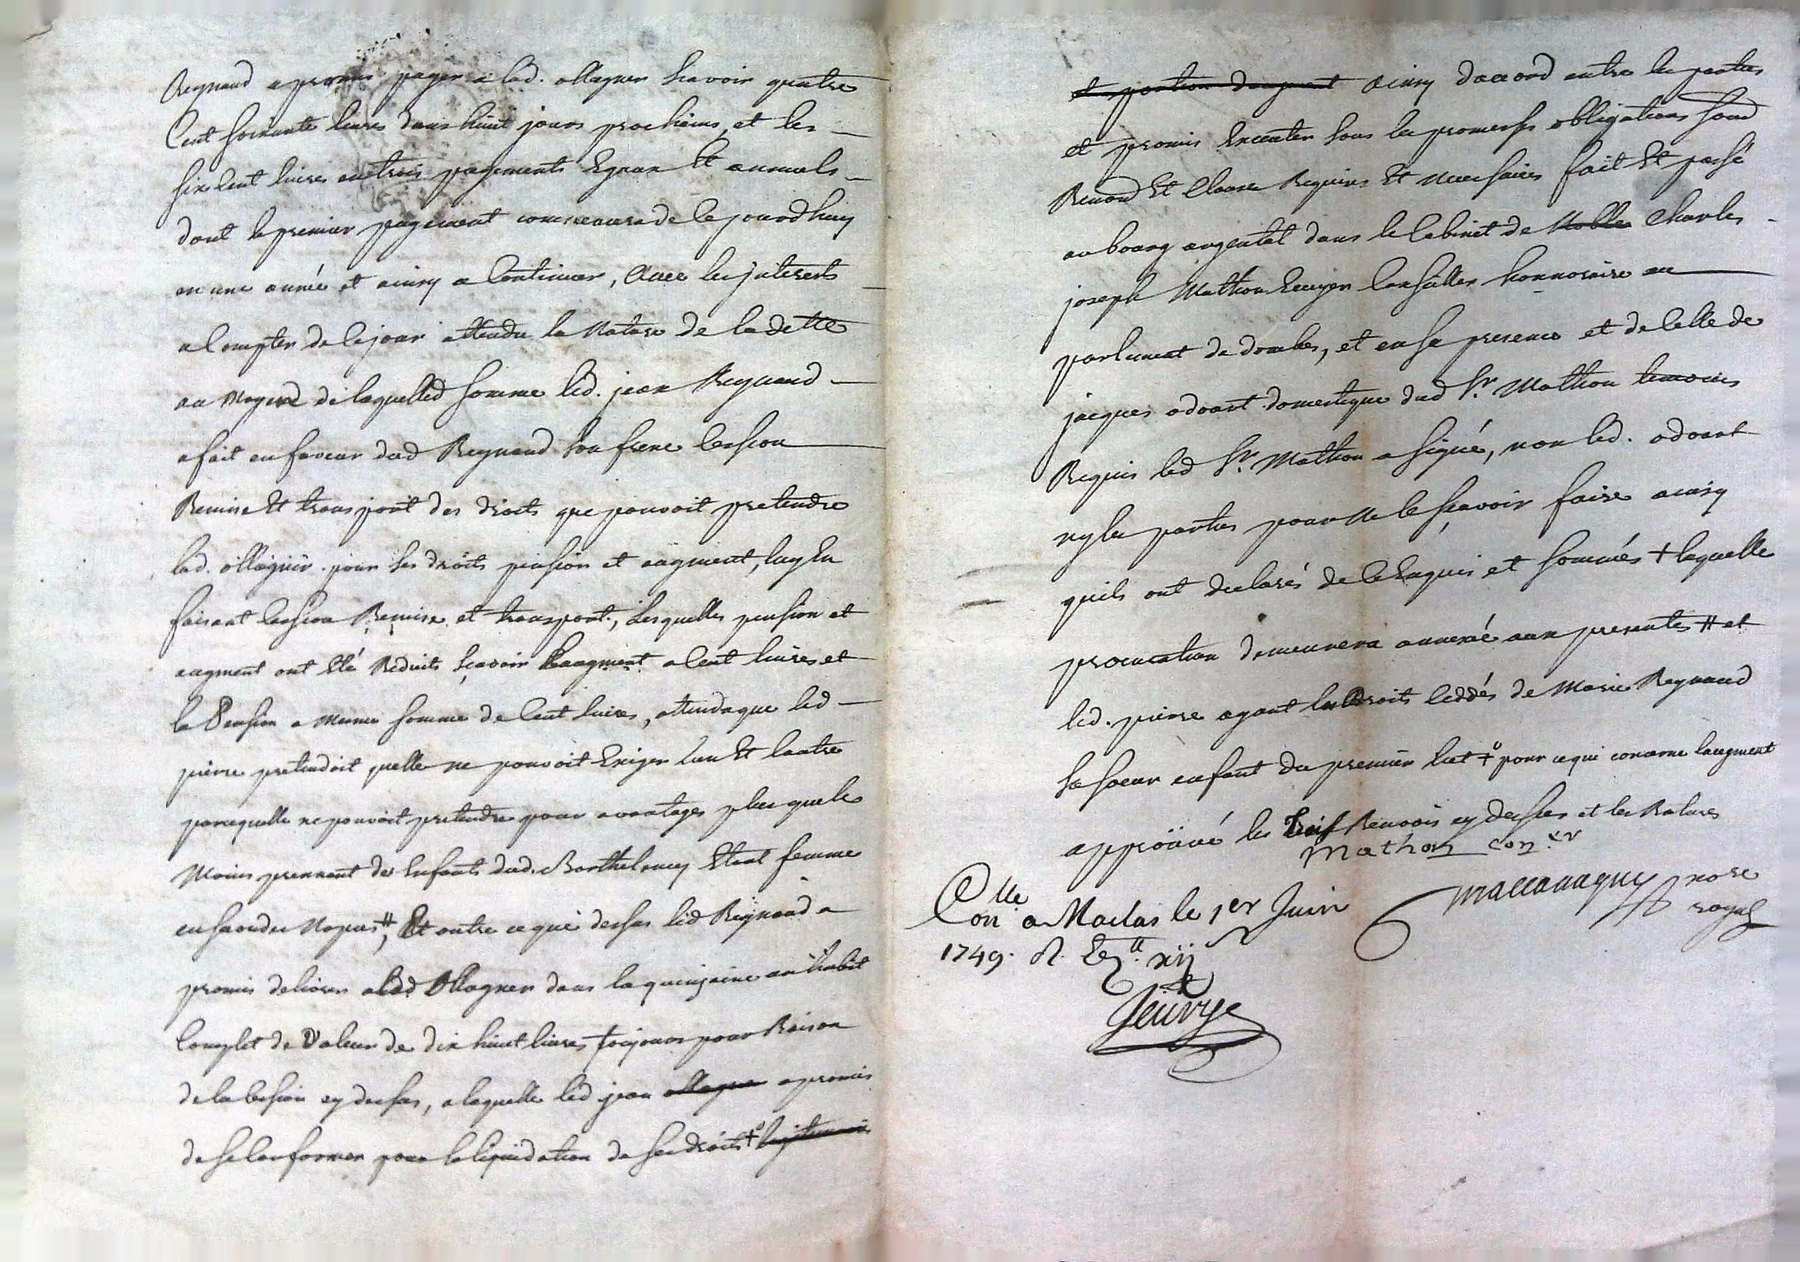 Reynaud a promis payer a lad. ollagnier scavoir quatre
Cent soixante livres dans huit jours prochains, et les
six Cent livres en trois payements Egaux Et annuels
dont le premier payement commencera de ce jourdhuy
en une année et ainsy a Continuer, avec les jnterests
a Compter de ce jour attendu la Nature de la dette
au Moyend de laquelle somme led. jean Reynaud
a fait en faveur dud Reynaud son frere Cession
Remise Et transport des droits que pouvoit pretendre
lad. ollagnier pour ses droits pension et augment, luy En
faisant Cession Remise et transport, lesquelles pension et
augment ont Eté Reduits scavoir Laugment a Cent livres et
la Pension a meme somme de Cent livres, attendu que led
pierre pretendoit quelle ne pouvoit Exiger lun Et lautre
parcequelle ne pouvoit pretendre pour avantages plus que le
Moins prennent des Enfants dud. Barthelemy Etant femme
en secondes Nopces #, Et outre ce que dessus led Reynaud a
promis delivrer a lad Ollagnier dans la quinzaine un habit
Complet de Valeur de dix huit livres toujours pour Raison
de la Cession cy dessus, a laquelle led jean ollagnier a promis
de se Conformer pour la liquidation de ses droits +°
et portion daugment ainsy daccord entre les parties
et promis Executer sous les promesses obligations sous
Renond Et Clauses Requises Et Necessaires fait Et passé
au bourg argental dans le Cabinet de Noble Charles
joseph Mathon Ecuyer Conseiller honnoraire au
parlement de dombes, et en sa presence et de Celle de
jacques odouart domestique dud Sr. Mathon temoins
Requis led Sr. Mathon a signé, non led. odouart
ny les parties pour ne le scavoir faire ainsy
quils ont declarés de ce Enquis et sommés + laquelle
procuration demeurera annexé aux presentes # et
led. pierre ayant les Droits Ceddés de Marie Reynaud
sa soeur enfant du premier lict +° pour ce qui concerne laugment
approuvé les trois Renvois cy dessus et les Ratures
Mathon con.er
Collé
on a Maclas le 1er Juin
1749. R.
xij
nore
royal